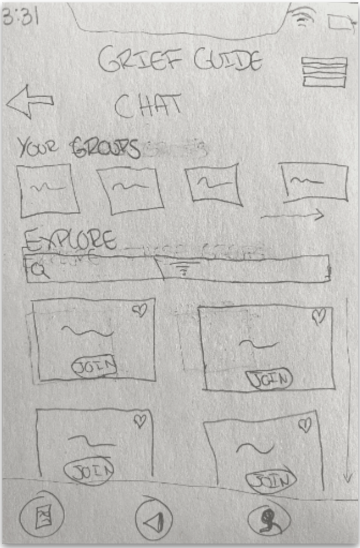 3:31
GRIEF GUIDE
CHAT
YOUR GROUPS
EXPLORE
JOIN
JOIN
JOIN
JOIN